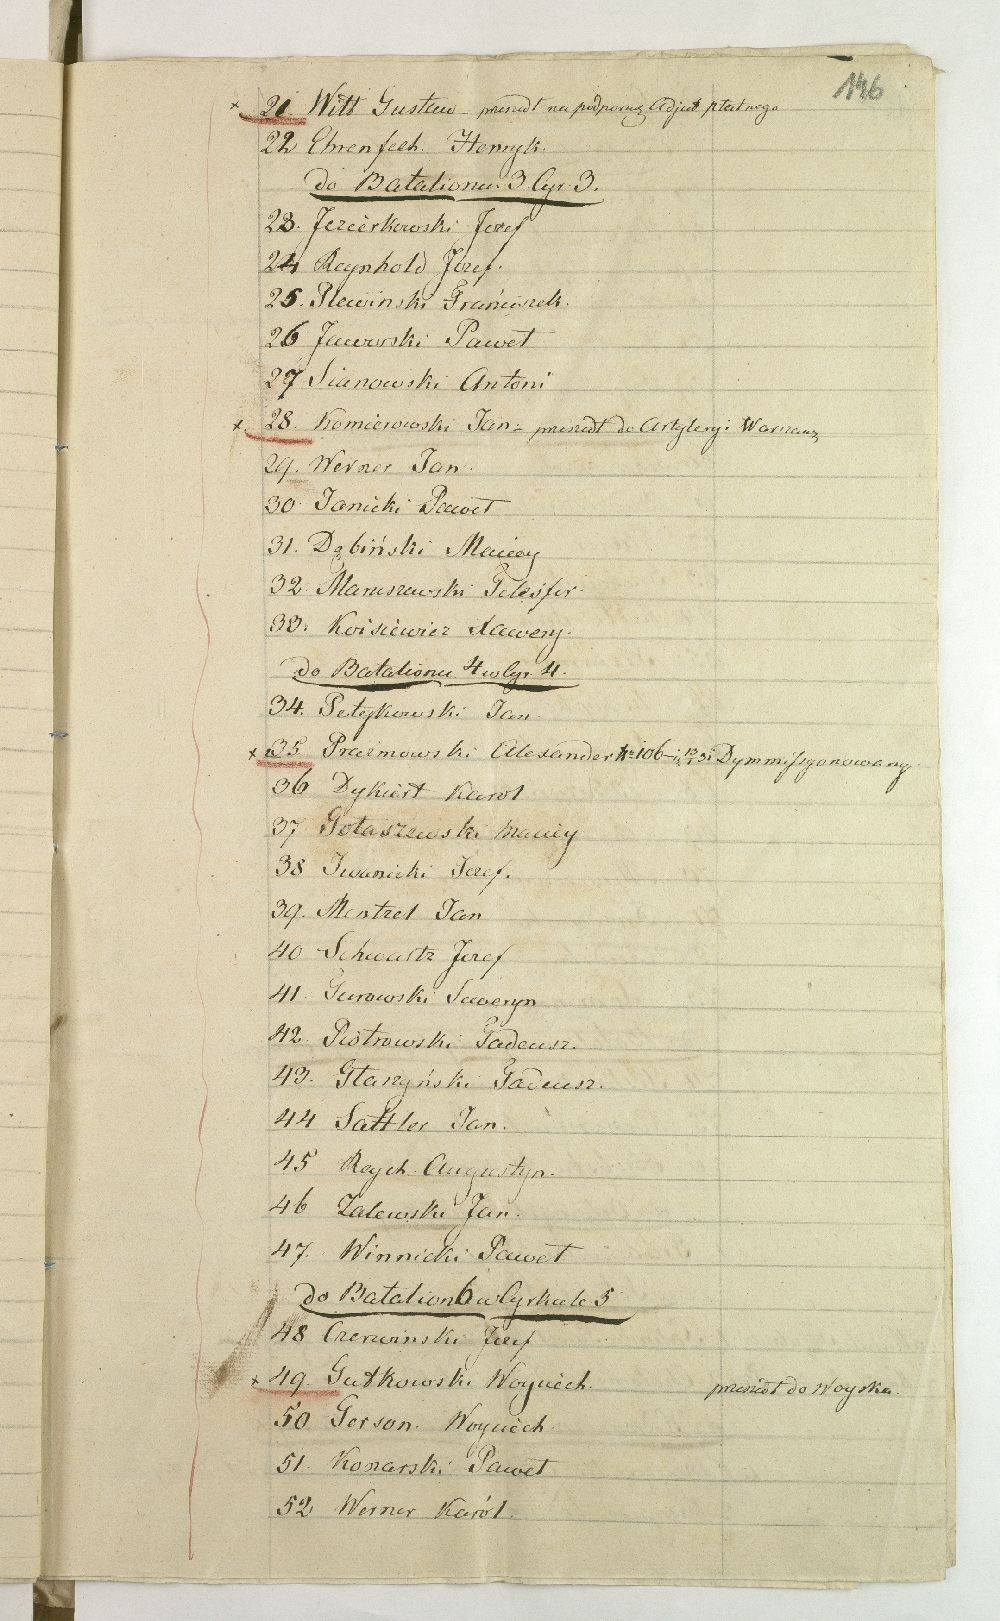 146
× 21 Witt Gustaw – przeszedł na podporucz. Adjut. płatnego
22 Ehrenfech. Henryk.
do Batalionu 3 Cyr. 3.
23. Jezierkowski Jozef
24 Reynhold Jozef.
25. Plewinski Franciszek.
26 Jaworski Paweł
27 Sianowski Antoni
× 28. Komierowski Jan – przeszedł do Artyleryi Warszaws.
29. Werner Jan.
30 Janicki Paweł
31. Dąbiński Maciey
32 Maruszewski Telesfor
33. Koisiewicz Xawery.
do Batalionu 4 w Cyr. 4.
34. Petrykowski Jan.
× 35 Prazmowski Alexander № 106 – Dymmissyonowany
36 Dykiert Karol
37 Gołaszewski Maciey
38 Iwanicki Jozef.
39. Mentzel Jan
40 Schwartz Jozef
41. Gurowski Seweryn
42. Piotrowski Tadeusz.
43. Staszyński Tadeusz.
44 Sattler Jan.
45 Reych Augustyn.
46 Zalewski Jan.
47. Winnicki Paweł
do Batalion 6 w Cyrkule 5
48 Czerwinski Jozef
× 49. Gutkowski Woyciech. przeszedł do Woyska.
50 Gerson. Woyciech.
51. Konarski Paweł
52 Werner Karól.